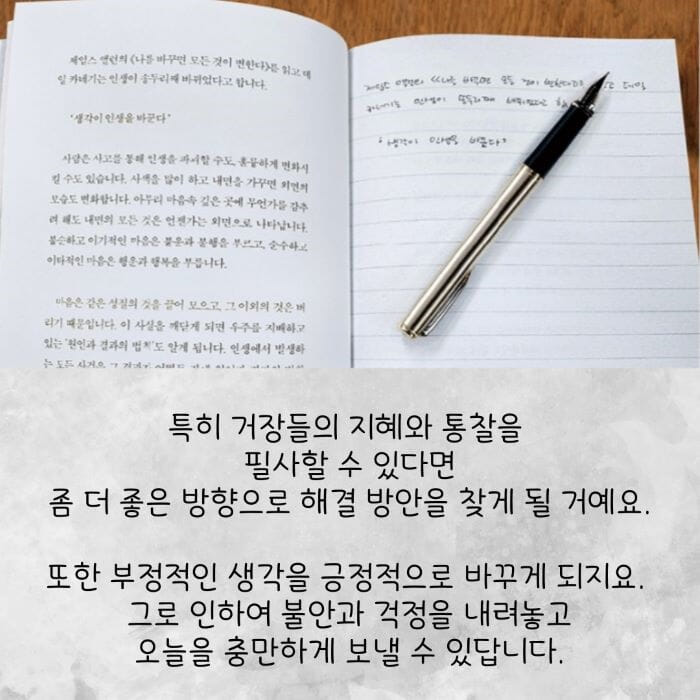 제임스 앨런의 《나를 바꾸면 모든 것이 변한다》를 읽고 데
일 카네기는 인생이 송두리째 바뀌었다고 합니다.
'생각이 인생을 바꾼다'
사람은 사고를 통해 인생을 파괴할 수도, 훌륭하게 변화시
킬 수도 있습니다. 사색을 많이 하고 내면을 가꾸면 외면의
모습도 변화합니다. 아무리 마음속 깊은 곳에 무언가를 감추
려 해도 내면의 모든 것은 언젠가는 외면으로 나타납니다.
불순하고 이기적인 마음은 불운과 불행을 부르고, 순수하고
이타적인 마음은 행운과 행복을 부릅니다.
마음은 같은 성질의 것을 끌어 모으고, 그 이외의 것은 버
리기 때문입니다. 이 사실을 깨닫게 되면 우주를 지배하고
있는 '원인과 결과의 법칙'도 알게 됩니다. 인생에서 발생하
는 모든
제임스 앨런의 《나를 바꾸면 모든 것이 변한다》 데일
카네기는 인생이 송두리째 바뀌었다고
'생각이 인생을 바꾼다'
특히 거장들의 지혜와 통찰을
필사할 수 있다면
좀 더 좋은 방향으로 해결 방안을 찾게 될 거예요.
또한 부정적인 생각을 긍정적으로 바꾸게 되지요.
그로 인하여 불안과 걱정을 내려놓고
오늘을 충만하게 보낼 수 있답니다.